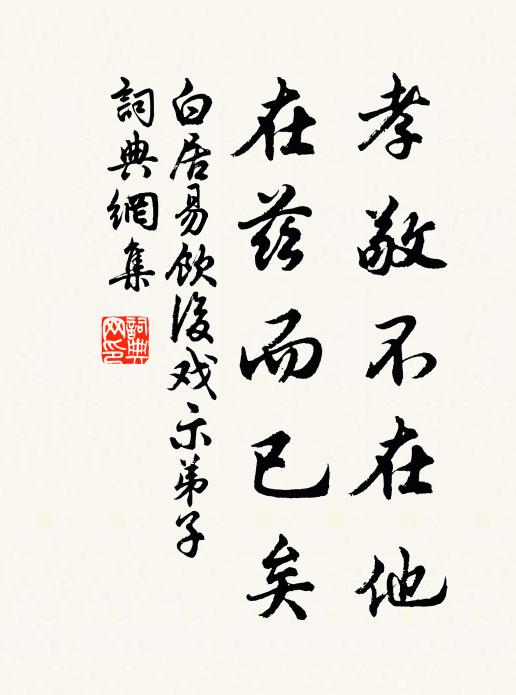 孝敬不在他
在兹而已矣
白居易飲後戏示弟子
詞典網集
詞典网印